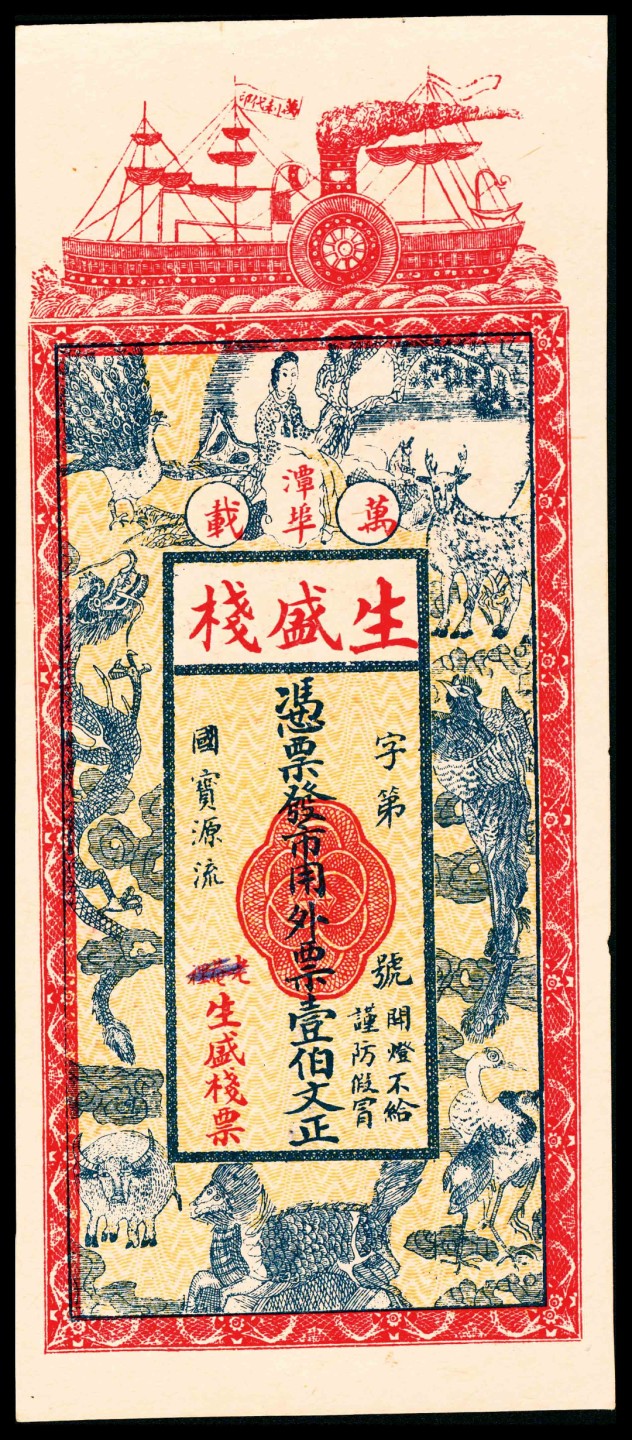 萬利代印
萬載
潭埠
生盛棧
字第　號
開燈不給
謹防假冒
憑票發市用外票壹伯文正
國寶源流
生盛棧票